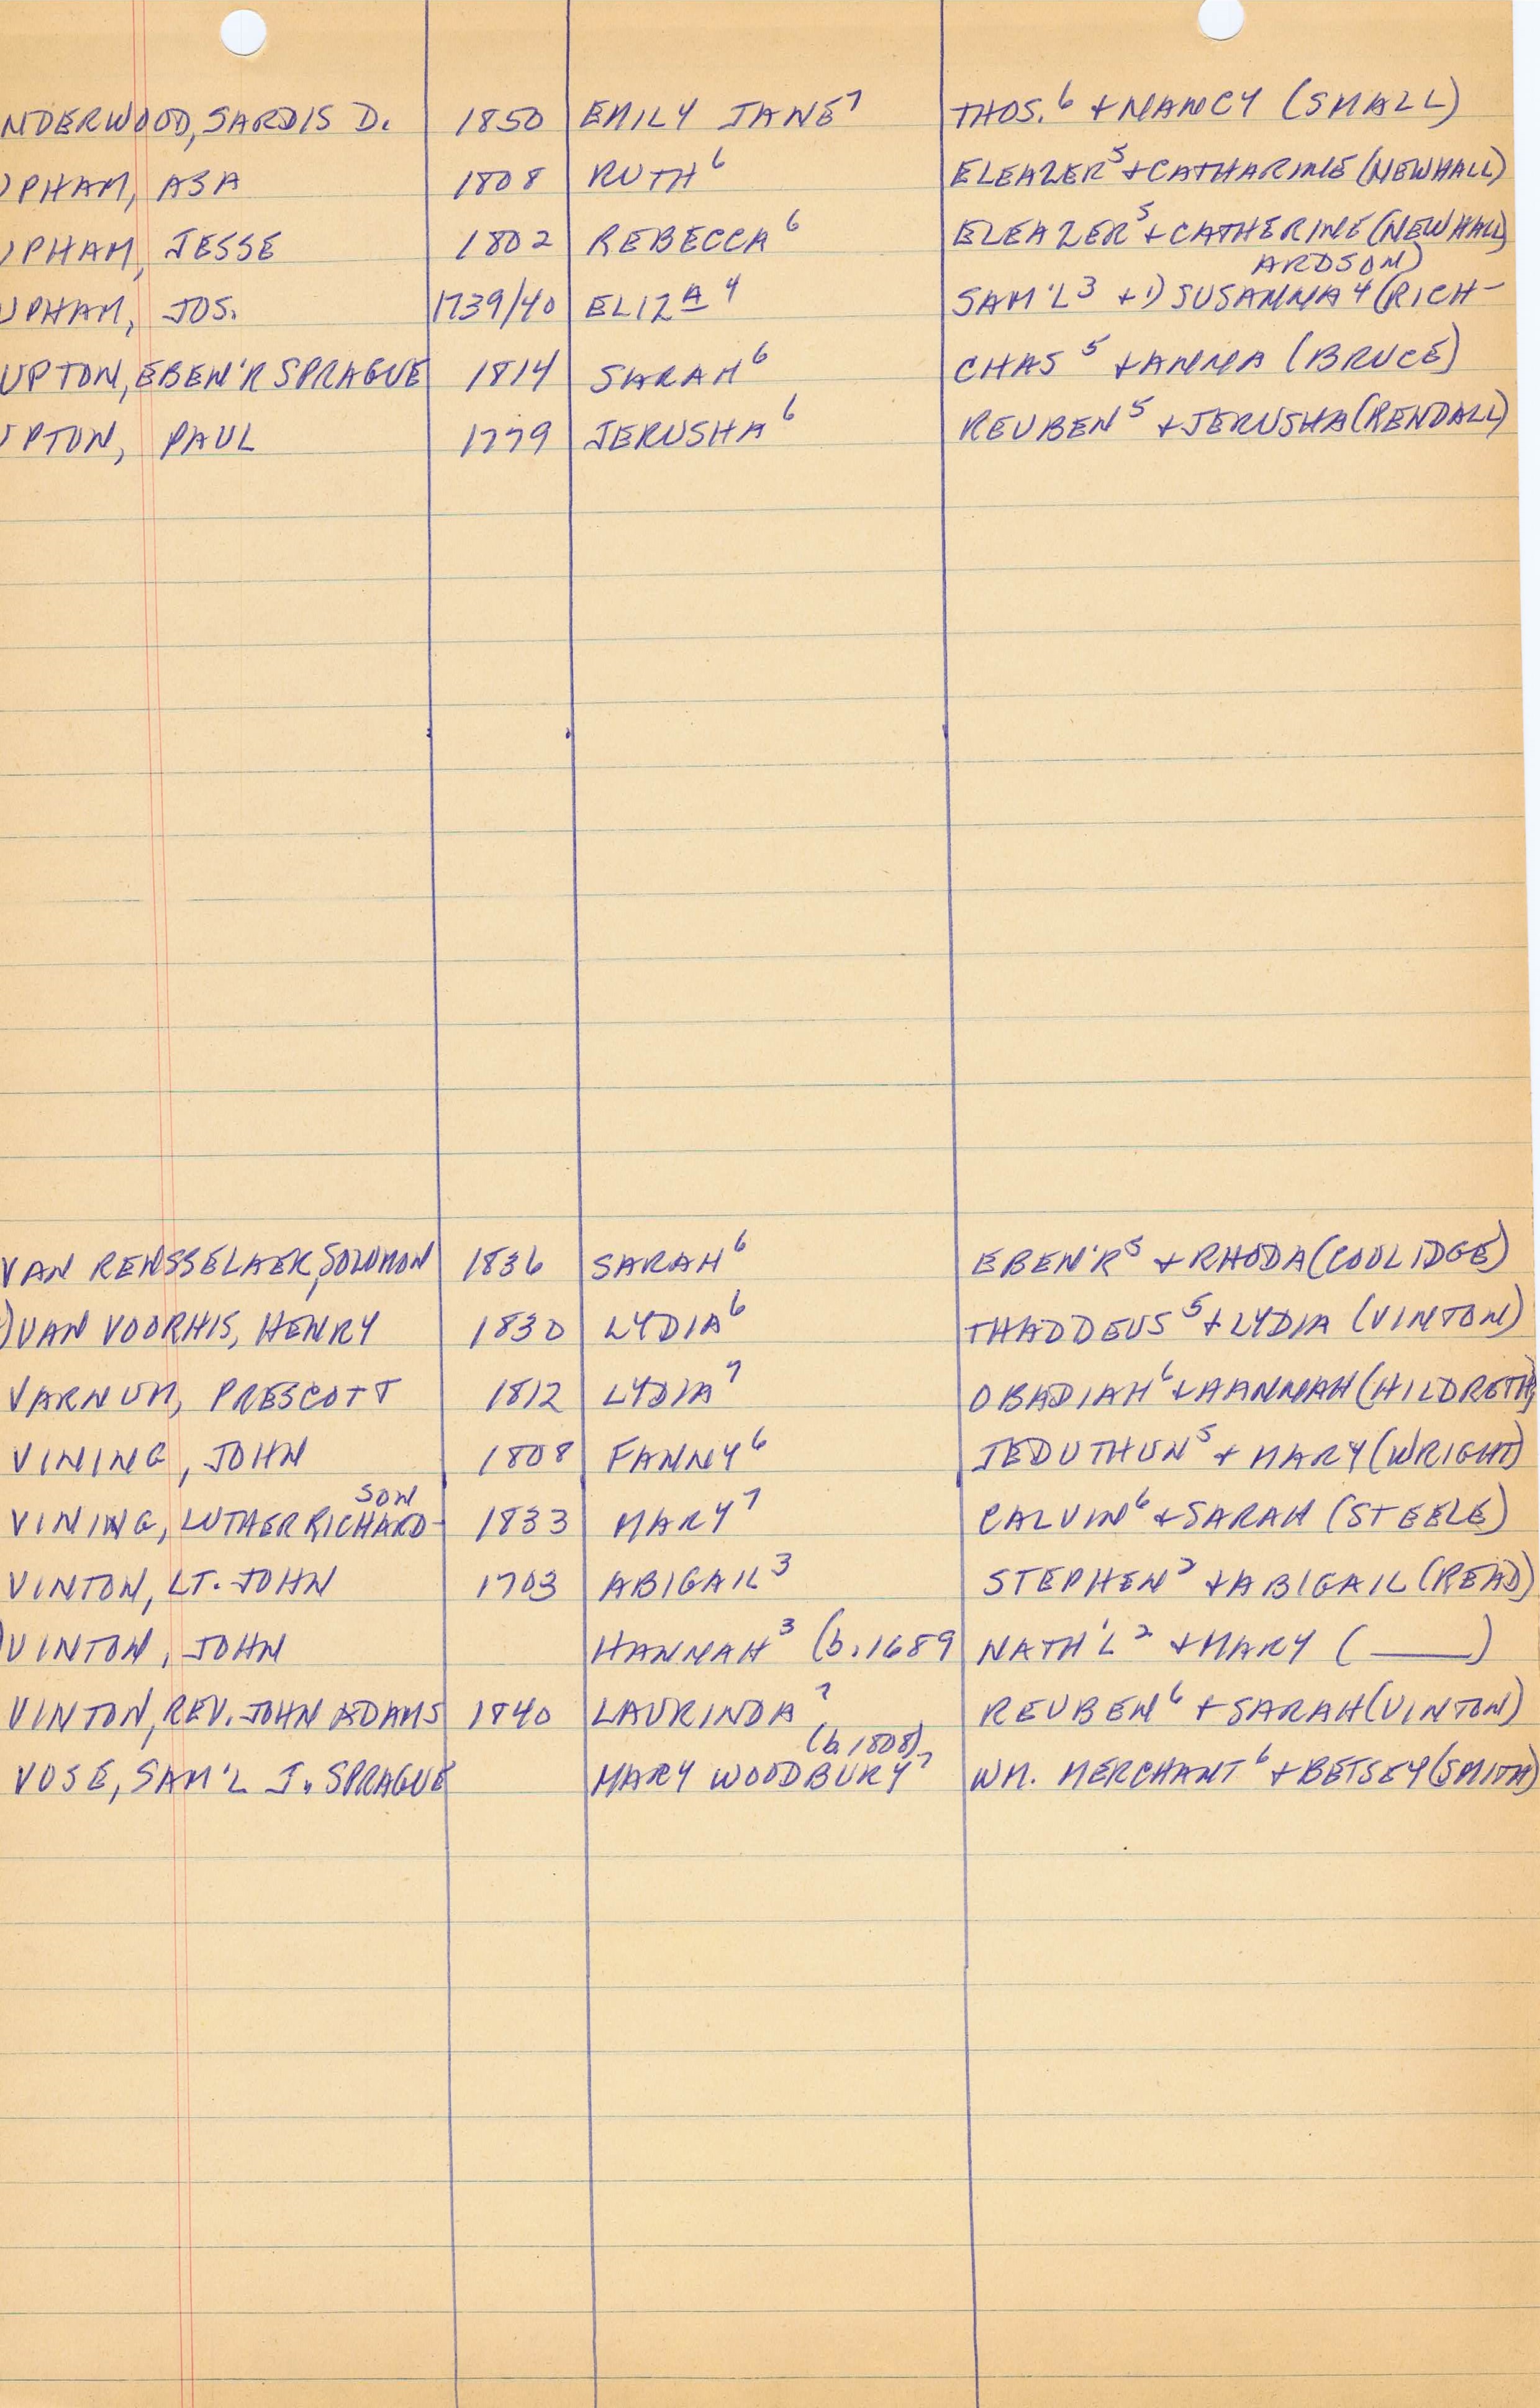 NDERWOOD, SARDIS D. 1850 EMILY JANE⁷ THOS.⁶ + NANCY (SMALL)
UPHAM, ASA 1808 RUTH⁶ ELEAZER⁵ + CATHARINE (NEWHALL)
UPHAM, JESSE 1802 REBECCA⁶ ELEAZER⁵ + CATHERINE (NEWHALL)
ARDSON)
UPHAM, JOS. 1739/40 ELIZᴬ ⁴ SAM'L³ + 1) SUSANNA⁴ (RICH-
UPTON, EBEN'R SPRAGUE 1814 SARAH⁶ CHAS⁵ + ANNA (BRUCE)
UPTON, PAUL 1779 JERUSHA⁶ REUBEN⁵ + JERUSHA (KENDALL)
VAN RENSSELAER, SOLOMON 1836 SARAH⁶ EBEN'R⁵ + RHODA (COOLIDGE)
)VAN VOORHIS, HENRY 1830 LYDIA⁶ THADDEUS⁵ + LYDIA (VINTON)
VARNUM, PRESCOTT 1812 LYDIA⁷ OBADIAH⁶ + HANNAH (HILDRETH)
VINING, JOHN 1808 FANNY⁶ JEDUTHUN⁵ + MARY (WRIGHT)
SON
VINING, LUTHER RICHARD- 1833 MARY⁷ CALVIN⁶ + SARAH (STEELE)
VINTON, LT. JOHN 1703 ABIGAIL³ STEPHEN² + ABIGAIL (READ)
)VINTON, JOHN HANNAH³ (b. 1689 NATH'L² + MARY ( ____ )
VINTON, REV. JOHN ADAMS 1840 LAURINDA⁷ REUBEN⁶ + SARAH (VINTON)
(b. 1808)
VOSE, SAM'L J. SPRAGUE MARY WOODBURY⁷ WM. MERCHANT⁶ + BETSEY (SMITH)